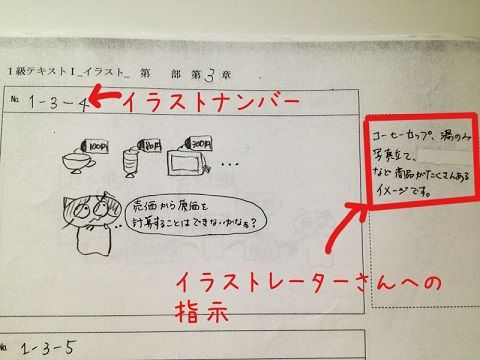 1級テキストⅠ_イラスト_ 第 部 第 3 章
No. 1-3-4
イラストナンバー
100円
80円
300円
...
売価から原価を
計算することはできないかなぁ?
コーヒーカップ、湯のみ
写真立て、
など商品がたくさんある
イメージです。
イラストレーターさんへの
指示
No. 1-3-5